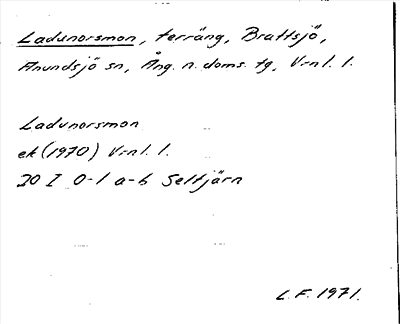 Ladunorsmon, terräng, Brattsjö,
Anundsjö sn, Ång. n. doms. tg, Vrnl. l.
Ladunorsmon
ek (1970) Vrnl. l.
20 I 0-1 a-b Seltjärn
L. F. 1971.